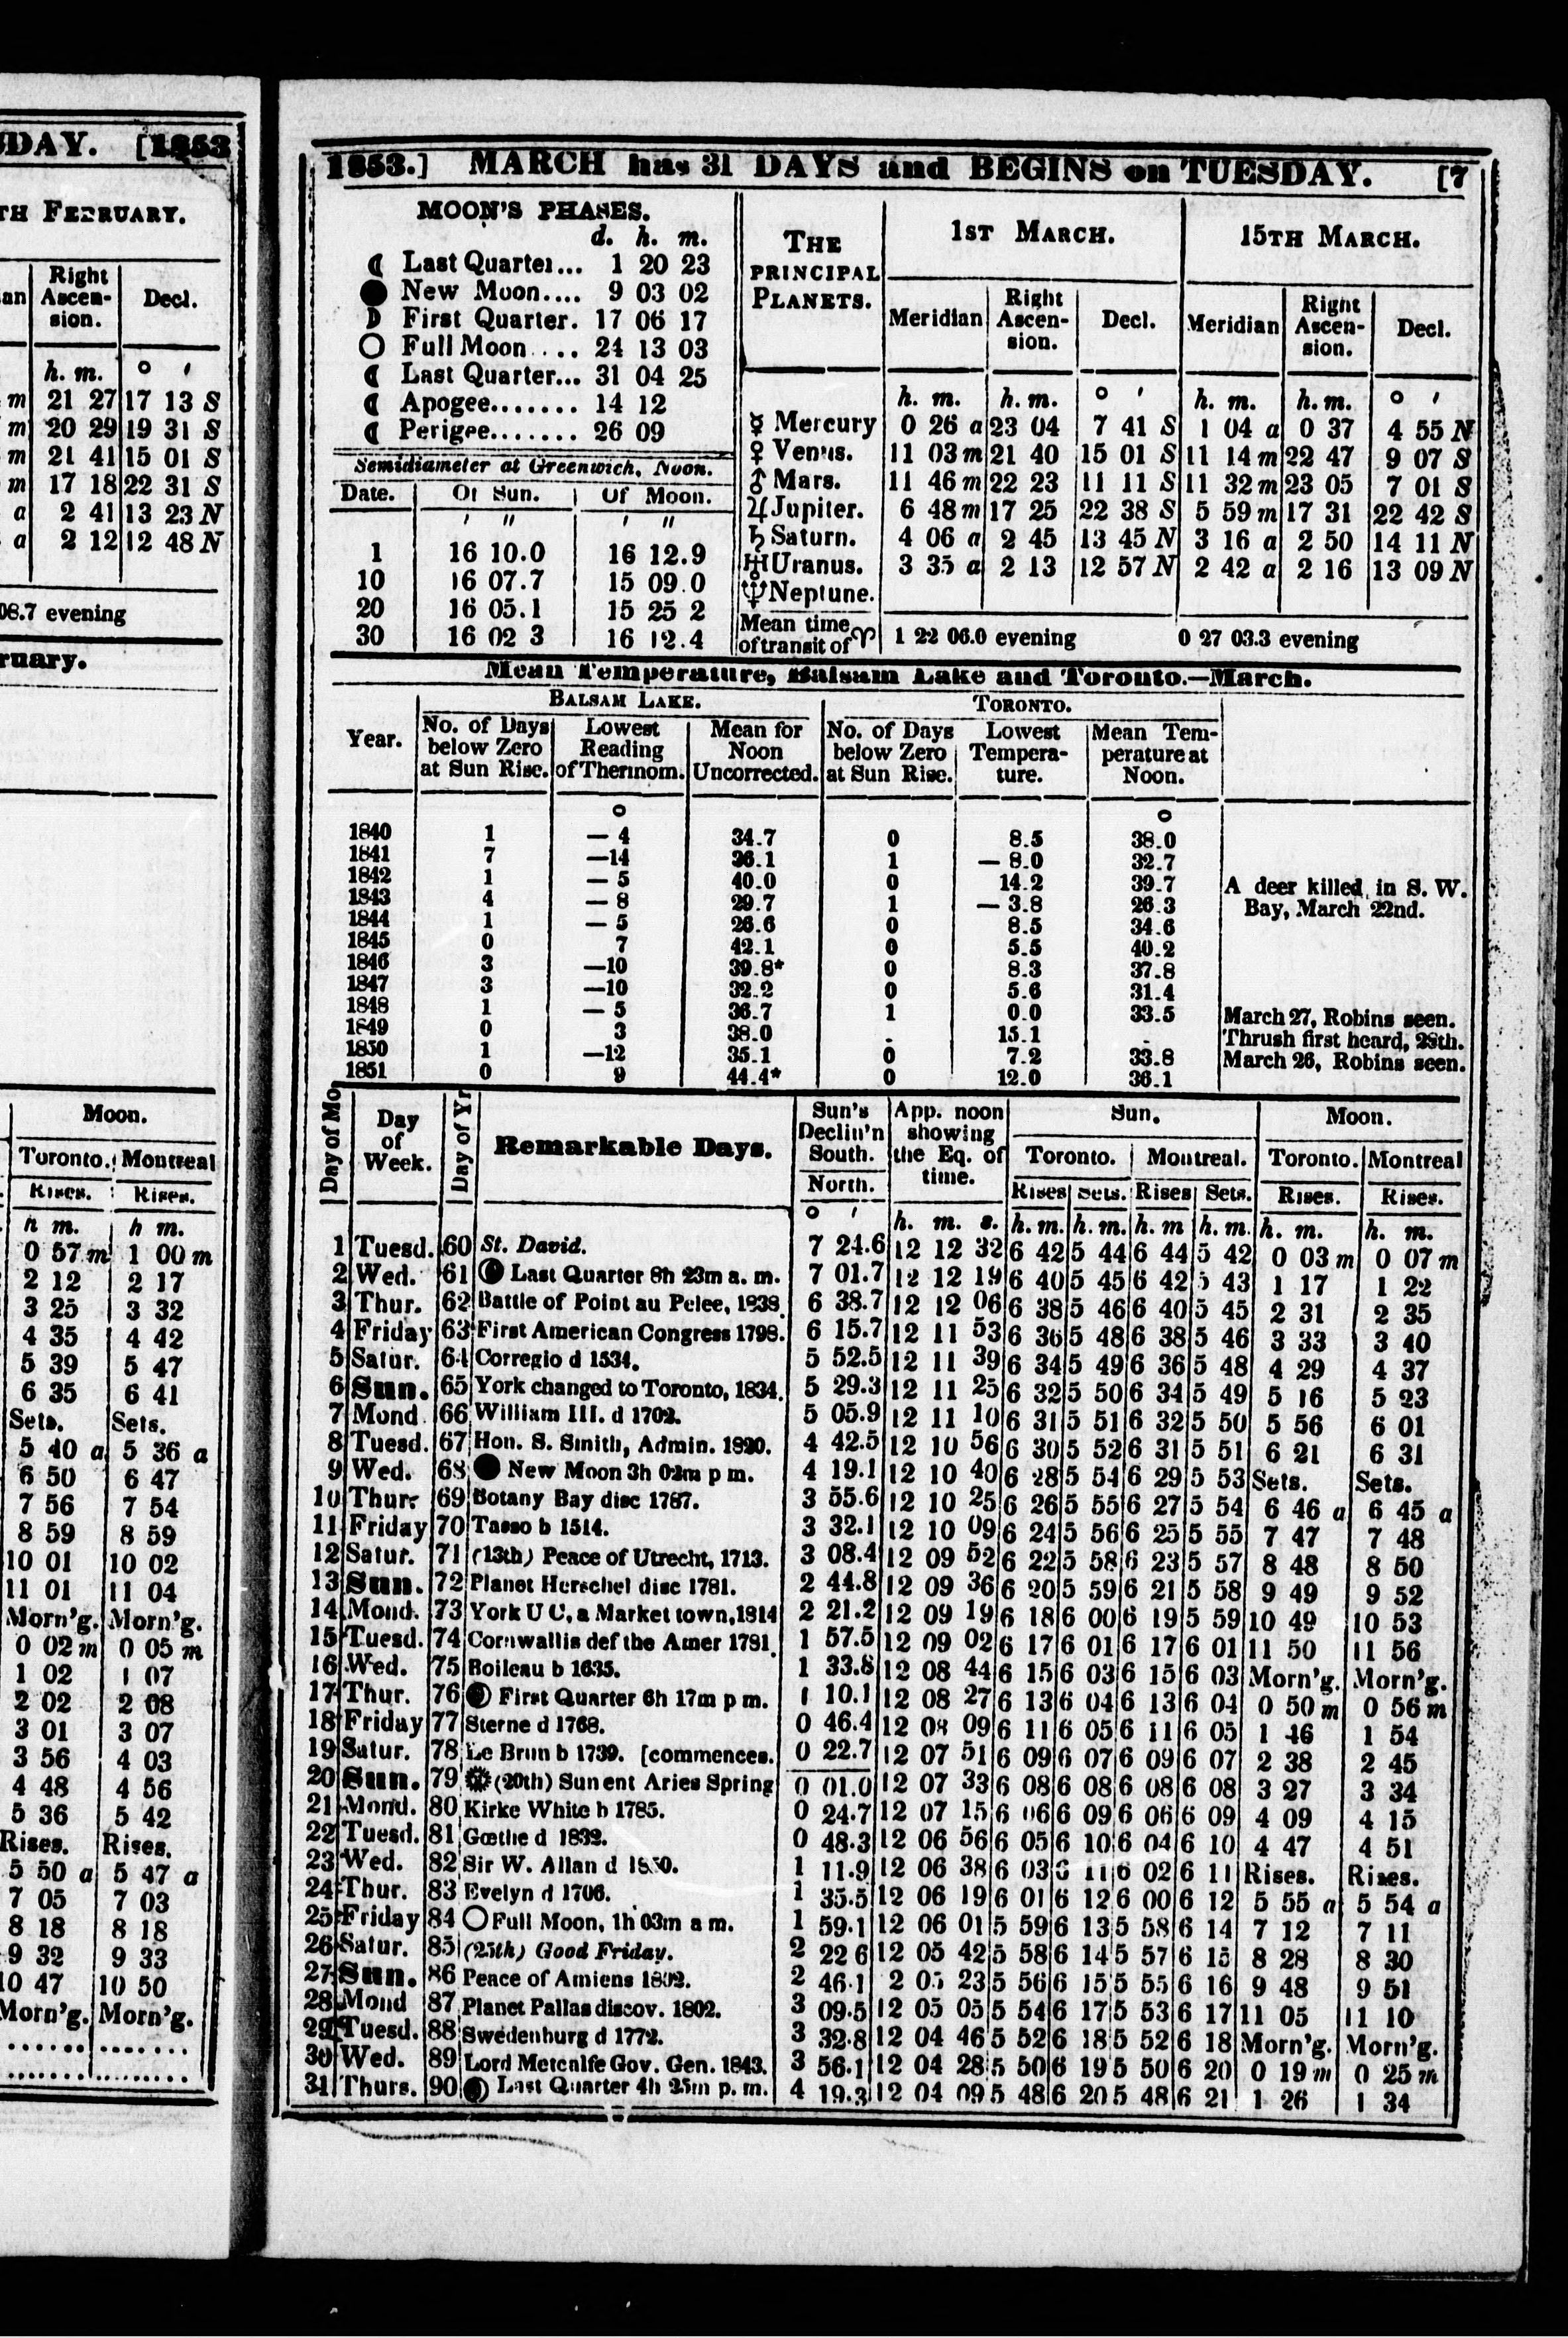 DAY. [1853
TH FEBRUARY.
Right Ascen-sion. Decl.
h. m. o '
m 21 27 17 13 S
m 20 29 19 31 S
m 21 41 15 01 S
m 17 18 22 31 S
a 2 41 13 23 N
a 2 12 12 48 N
08.7 evening
ruary.
Moon.
Toronto. Montreal
Rises. Rises.
h m. h m.
0 57 m 1 00 m
2 12 2 17
3 25 3 32
4 35 4 42
5 39 5 47
6 35 6 41
Sets. Sets.
5 40 a 5 36 a
6 50 6 47
7 56 7 54
8 59 8 59
10 01 10 02
11 01 11 04
Morn'g. Morn'g.
0 02 m 0 05 m
1 02 1 07
2 02 2 08
3 01 3 07
3 56 4 03
4 48 4 56
5 36 5 42
Rises. Rises.
5 50 a 5 47 a
7 05 7 03
8 18 8 18
9 32 9 33
10 47 10 50
Morn'g. Morn'g.
1853.] MARCH has 31 DAYS and BEGINS on TUESDAY. [7
MOON'S PHASES.
d. h. m.
☾ Last Quarter... 1 20 23
● New Moon.... 9 03 02
☽ First Quarter. 17 06 17
○ Full Moon .... 24 13 03
☾ Last Quarter... 31 04 25
☾ Apogee....... 14 12
☾ Perigee....... 26 09
Semidiameter at Greenwich, Noon.
Date. Of Sun. Of Moon.
' " ' "
1 16 10.0 16 12.9
10 16 07.7 15 09.0
20 16 05.1 15 25 2
30 16 02 3 16 12.4
THE PRINCIPAL PLANETS. 1ST MARCH. 15TH MARCH.
Meridian Right Ascen-sion. Decl. Meridian Right Ascen-sion. Decl.
h. m. h. m. o ' h. m. h. m. o '
☿ Mercury 0 26 a 23 04 7 41 S 1 04 a 0 37 4 55 N
♀ Venus. 11 03 m 21 40 15 01 S 11 14 m 22 47 9 07 S
♂ Mars. 11 46 m 22 23 11 11 S 11 32 m 23 05 7 01 S
♃ Jupiter. 6 48 m 17 25 22 38 S 5 59 m 17 31 22 42 S
♄ Saturn. 4 06 a 2 45 13 45 N 3 16 a 2 50 14 11 N
♅ Uranus. 3 35 a 2 13 12 57 N 2 42 a 2 16 13 09 N
♆ Neptune.
Mean time of transit of ♈ 1 22 06.0 evening 0 27 03.3 evening
Mean Temperature, Balsam Lake and Toronto.—March.
BALSAM LAKE. TORONTO.
Year. No. of Days below Zero at Sun Rise. Lowest Reading of Thermom. Mean for Noon Uncorrected. No. of Days below Zero at Sun Rise. Lowest Tempera-ture. Mean Tem-perature at Noon.
o o
1840 1 — 4 34.7 0 8.5 38.0
1841 7 —14 36.1 1 — 8.0 32.7
1842 1 — 5 40.0 0 14.2 39.7 A deer killed in S. W.
1843 4 — 8 29.7 1 — 3.8 26.3 Bay, March 22nd.
1844 1 — 5 26.6 0 8.5 34.6
1845 0 7 42.1 0 5.5 40.2
1846 3 —10 39.8* 0 8.3 37.8
1847 3 —10 32.2 0 5.6 31.4
1848 1 — 5 36.7 1 0.0 33.5 March 27, Robins seen.
1849 0 3 38.0 . 15.1 . Thrush first heard, 29th.
1850 1 —12 35.1 0 7.2 33.8 March 26, Robins seen.
1851 0 9 44.4* 0 12.0 36.1
Day of Mo Day of Week. Day of Yr Remarkable Days. Sun's Declin'n South. North. App. noon showing the Eq. of time. Sun. Moon.
Toronto. Montreal. Toronto. Montreal
Rises Sets. Rises Sets. Rises. Rises.
o ' h. m. s. h. m. h. m. h. m h. m. h. m. h. m.
1 Tuesd. 60 St. David. 7 24.6 12 12 32 6 42 5 44 6 44 5 42 0 03 m 0 07 m
2 Wed. 61 Last Quarter 8h 23m a. m. 7 01.7 12 12 19 6 40 5 45 6 42 5 43 1 17 1 22
3 Thur. 62 Battle of Point au Pelee, 1838. 6 38.7 12 12 06 6 38 5 46 6 40 5 45 2 31 2 35
4 Friday 63 First American Congress 1798. 6 15.7 12 11 53 6 36 5 48 6 38 5 46 3 33 3 40
5 Satur. 64 Corregio d 1534. 5 52.5 12 11 39 6 34 5 49 6 36 5 48 4 29 4 37
6 Sun. 65 York changed to Toronto, 1834. 5 29.3 12 11 25 6 32 5 50 6 34 5 49 5 16 5 23
7 Mond 66 William III. d 1702. 5 05.9 12 11 10 6 31 5 51 6 32 5 50 5 56 6 01
8 Tuesd. 67 Hon. S. Smith, Admin. 1820. 4 42.5 12 10 56 6 30 5 52 6 31 5 51 6 21 6 31
9 Wed. 68 ● New Moon 3h 02m p m. 4 19.1 12 10 40 6 28 5 54 6 29 5 53 Sets. Sets.
10 Thur 69 Botany Bay disc 1787. 3 55.6 12 10 25 6 26 5 55 6 27 5 54 6 46 a 6 45 a
11 Friday 70 Tasso b 1514. 3 32.1 12 10 09 6 24 5 56 6 25 5 55 7 47 7 48
12 Satur. 71 (13th) Peace of Utrecht, 1713. 3 08.4 12 09 52 6 22 5 58 6 23 5 57 8 48 8 50
13 Sun. 72 Planet Herschel disc 1781. 2 44.8 12 09 36 6 20 5 59 6 21 5 58 9 49 9 52
14 Mond. 73 York U C, a Market town, 1814 2 21.2 12 09 19 6 18 6 00 6 19 5 59 10 49 10 53
15 Tuesd. 74 Cornwallis def the Amer 1781. 1 57.5 12 09 02 6 17 6 01 6 17 6 01 11 50 11 56
16 Wed. 75 Boileau b 1635. 1 33.8 12 08 44 6 15 6 03 6 15 6 03 Morn'g. Morn'g.
17 Thur. 76 First Quarter 6h 17m p m. 1 10.1 12 08 27 6 13 6 04 6 13 6 04 0 50 m 0 56 m
18 Friday 77 Sterne d 1768. 0 46.4 12 08 09 6 11 6 05 6 11 6 05 1 46 1 54
19 Satur. 78 Le Brun b 1739. [commences. 0 22.7 12 07 51 6 09 6 07 6 09 6 07 2 38 2 45
20 Sun. 79 (20th) Sun ent Aries Spring 0 01.0 12 07 33 6 08 6 08 6 08 6 08 3 27 3 34
21 Mond. 80 Kirke White b 1785. 0 24.7 12 07 15 6 06 6 09 6 06 6 09 4 09 4 15
22 Tuesd. 81 Gœthe d 1832. 0 48.3 12 06 56 6 05 6 10 6 04 6 10 4 47 4 51
23 Wed. 82 Sir W. Allan d 1 11.9 12 06 38 6 03 6 11 6 02 6 11 Rises. Rises.
24 Thur. 83 Evelyn d 1706. 1 35.5 12 06 19 6 01 6 12 6 00 6 12 5 55 a 5 54 a
25 Friday 84 ○ Full Moon, 1h 03m a m. 1 59.1 12 06 01 5 59 6 13 5 58 6 14 7 12 7 11
26 Satur. 85 (25th) Good Friday. 2 22 6 12 05 42 5 58 6 14 5 57 6 15 8 28 8 30
27 Sun. 86 Peace of Amiens 1802. 2 46.1 2 05 23 5 56 6 15 5 55 6 16 9 48 9 51
28 Mond 87 Planet Pallas discov. 1802. 3 09.5 12 05 05 5 54 6 17 5 53 6 17 11 05 11 10
29 Tuesd. 88 Swedenburg d 1772. 3 32.8 12 04 46 5 52 6 18 5 52 6 18 Morn'g. Morn'g.
30 Wed. 89 Lord Metcalfe Gov. Gen. 1843. 3 56.1 12 04 28 5 50 6 19 5 50 6 20 0 19 m 0 25 m
31 Thurs. 90 Last Quarter 4h 25m p. m. 4 19.3 12 04 09 5 48 6 20 5 48 6 21 1 26 1 34